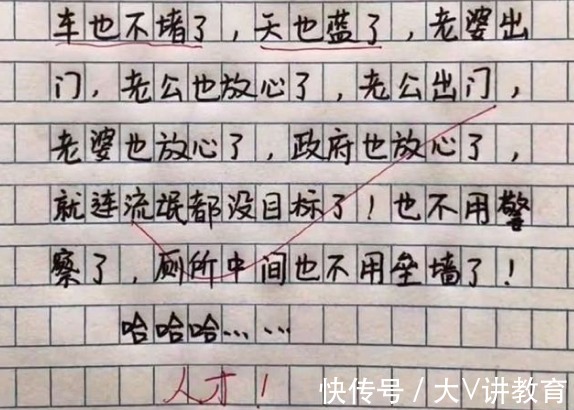 车也不堵了，天也蓝了，老婆出
门，老公也放心了，老公出门，
老婆也放心了，政府也放心了，
就连流氓都没目标了！也不用警
察了，厕所中间也不用垒墙了！
哈哈哈……
人才！
快传号 / 大V讲教育